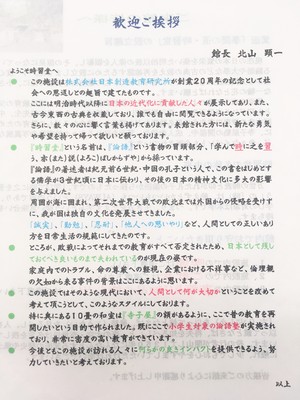 歓迎ご挨拶
館長 北山 顕一
ようこそ時習堂へ
この施設は株式会社日本創造教育研究所が創業20周年の記念として社
会への恩返しとの趣旨で建てたものです。
ここには明治時代以降に日本の近代化に貢献した人々が展示してあり、また、
古今東西の古典を収蔵しており、誰でも自由に閲覧できるようになっています。
さらに、数々の心に響く言葉も掲げてあります。来館された方には、新たな勇気
や希望を持って帰って欲しいと願っております。
『時習堂』という名前は、『論語』という書物の冒頭部分、「学んで時に之を習
う、亦(また)説(よろこ)ばしからずや」から採っています。
『論語』の著述者は紀元前の世紀・中国の孔子という人で、この書をはじめとす
る儒学が3世紀頃に日本に伝わり、その後の日本の精神文化に多大の影響
を与えました。
周囲が海に囲まれ、第二次世界大戦での敗北までは外国からの侵略を受けず
に、我が国は独自の文化を発展させてきました。
「誠実」、「勤勉」、「忍耐」、「他人への思いやり」など、人間としての正しいあり
方を日常生活の規範にしてきたのです。
ところが、敗戦によってそれまでの教育がすべて否定されたため、日本として残し
ておくべき良いものまで失われているのが現在の姿です。
家庭内でのトラブル、命の尊厳への軽視、企業における不祥事など、倫理観
の欠如から来る事件の背景はここにあるように思います。
この施設ではそのような現代において、人間として何が大切かということを改めて
考えて頂こうとして、このようなスタイルにしております。
特に奥にある10畳の和室は『寺子屋』の額があるように、ここで昔の教育を再
開したいという目的で作られました。既にここで小学生対象の論語塾が実施され
ており、非常に密度の高い教育ができています。
今後ともこの施設が訪れる人々に何らかの良きインパクトを提供できるよう、努
力していきたいと考えております。
以上